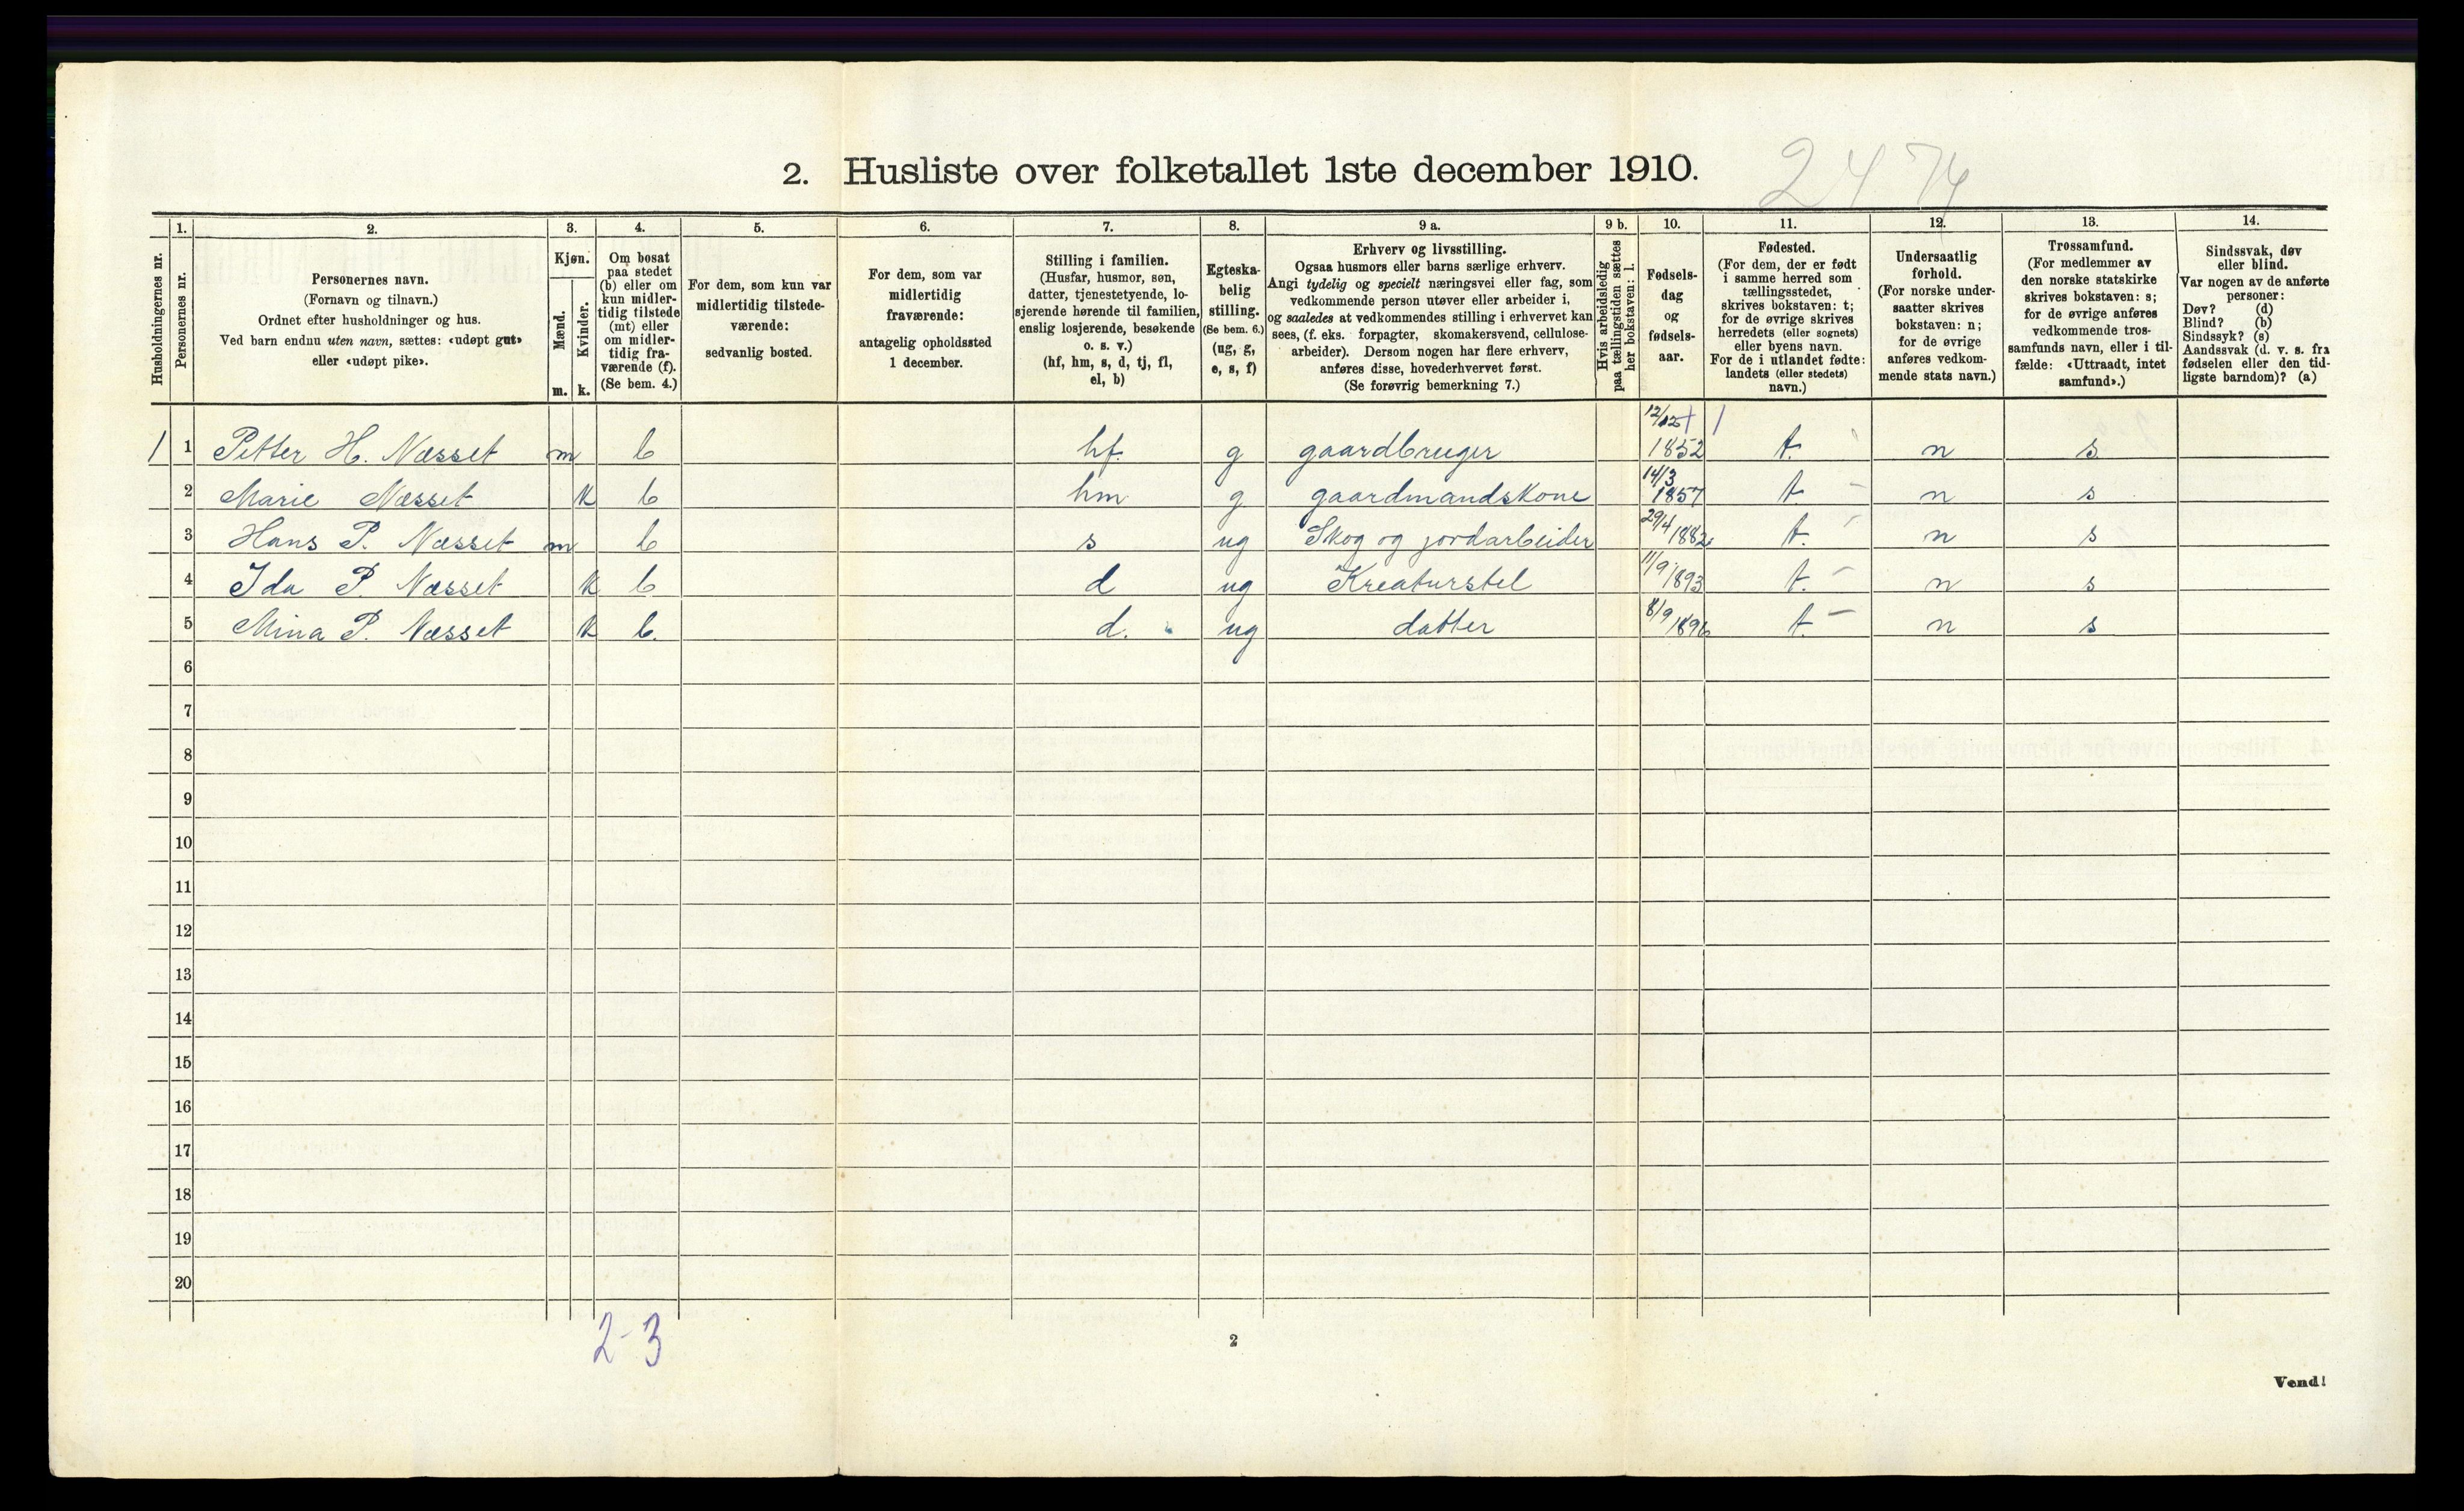 2474
2. Husliste over folketallet 1ste december 1910.
1. 2. 3. 4. 5. 6. 7. 8. 9 a. 9 b. 10. 11. 12. 13. 14.
Husholdningernes nr.
Personernes nr.
Personernes navn.
(Fornavn og tilnavn.)
Ordnet efter husholdninger og hus.
Ved barn endnu uten navn, sættes: «udøpt gut»
eller «udøpt pike».
Kjøn.
Mænd.
Kvinder.
m. k.
Om bosat
paa stedet
(b) eller om
kun midler-
tidig tilstede
(mt) eller
om midler-
tidig fra-
værende (f).
(Se bem. 4.)
For dem, som kun var
midlertidig tilstede-
værende:
sedvanlig bosted.
For dem, som var
midlertidig
fraværende:
antagelig opholdssted
1 december.
Stilling i familien.
(Husfar, husmor, søn,
datter, tjenestetyende, lo-
sjerende hørende til familien,
enslig losjerende, besøkende
o. s. v.)
(hf, hm, s, d, tj, fl,
el, b)
Egteska-
belig
stilling.
(Se bem. 6.)
(ug, g,
e, s, f)
Erhverv og livsstilling.
Ogsaa husmors eller barns særlige erhverv.
Angi tydelig og specielt næringsvei eller fag, som
vedkommende person utøver eller arbeider i,
og saaledes at vedkommendes stilling i erhvervet kan
sees, (f. eks. forpagter, skomakersvend, cellulose-
arbeider). Dersom nogen har flere erhverv,
anføres disse, hovederhvervet først.
(Se forøvrig bemerkning 7.)
Hvis arbeidsledig
paa tællingstiden sættes
her bokstaven: l.
Fødsels-
dag
og
fødsels-
aar.
Fødested.
(For dem, der er født
i samme herred som
tællingsstedet,
skrives bokstaven: t;
for de øvrige skrives
herredets (eller sognets)
eller byens navn.
For de i utlandet fødte:
landets (eller stedets)
navn.)
Undersaatlig
forhold.
(For norske under-
saatter skrives
bokstaven: n;
for de øvrige
anføres vedkom-
mende stats navn.)
Trossamfund.
(For medlemmer av
den norske statskirke
skrives bokstaven: s;
for de øvrige anføres
vedkommende tros-
samfunds navn, eller i til-
fælde: «Uttraadt, intet
samfund».)
Sindssvak, døv
eller blind.
Var nogen av de anførte
personer:
Døv? (d)
Blind? (b)
Sindssyk? (s)
Aandssvak (d. v. s. fra
fødselen eller den tid-
ligste barndom)? (a)
1 1 Petter H. Næsset m b hf. g gaardbruger 12/12 1852 t. n s
2 Marie Næsset k b hm g gaardmandskone 14/3 1857 t. n s
3 Hans P. Næsset m b s ug Skog og jordarbeider 29/4 1882 t. n s
4 Ida P. Næsset k b d ug Kreaturstel 11/9 1893 t. n s
5 Mina P. Næsset k b. d. ug datter 8/9 1896 t. n s
6
7
8
9
10
11
12
13
14
15
16
17
18
19
20
2-3
2
Vend!